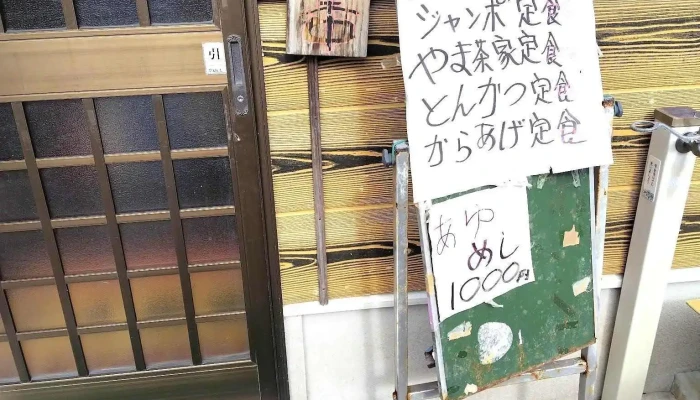 ジャンボ定食
やま茶家定食
とんかつ定食
からあげ定食
あゆ
めし
1000円
引